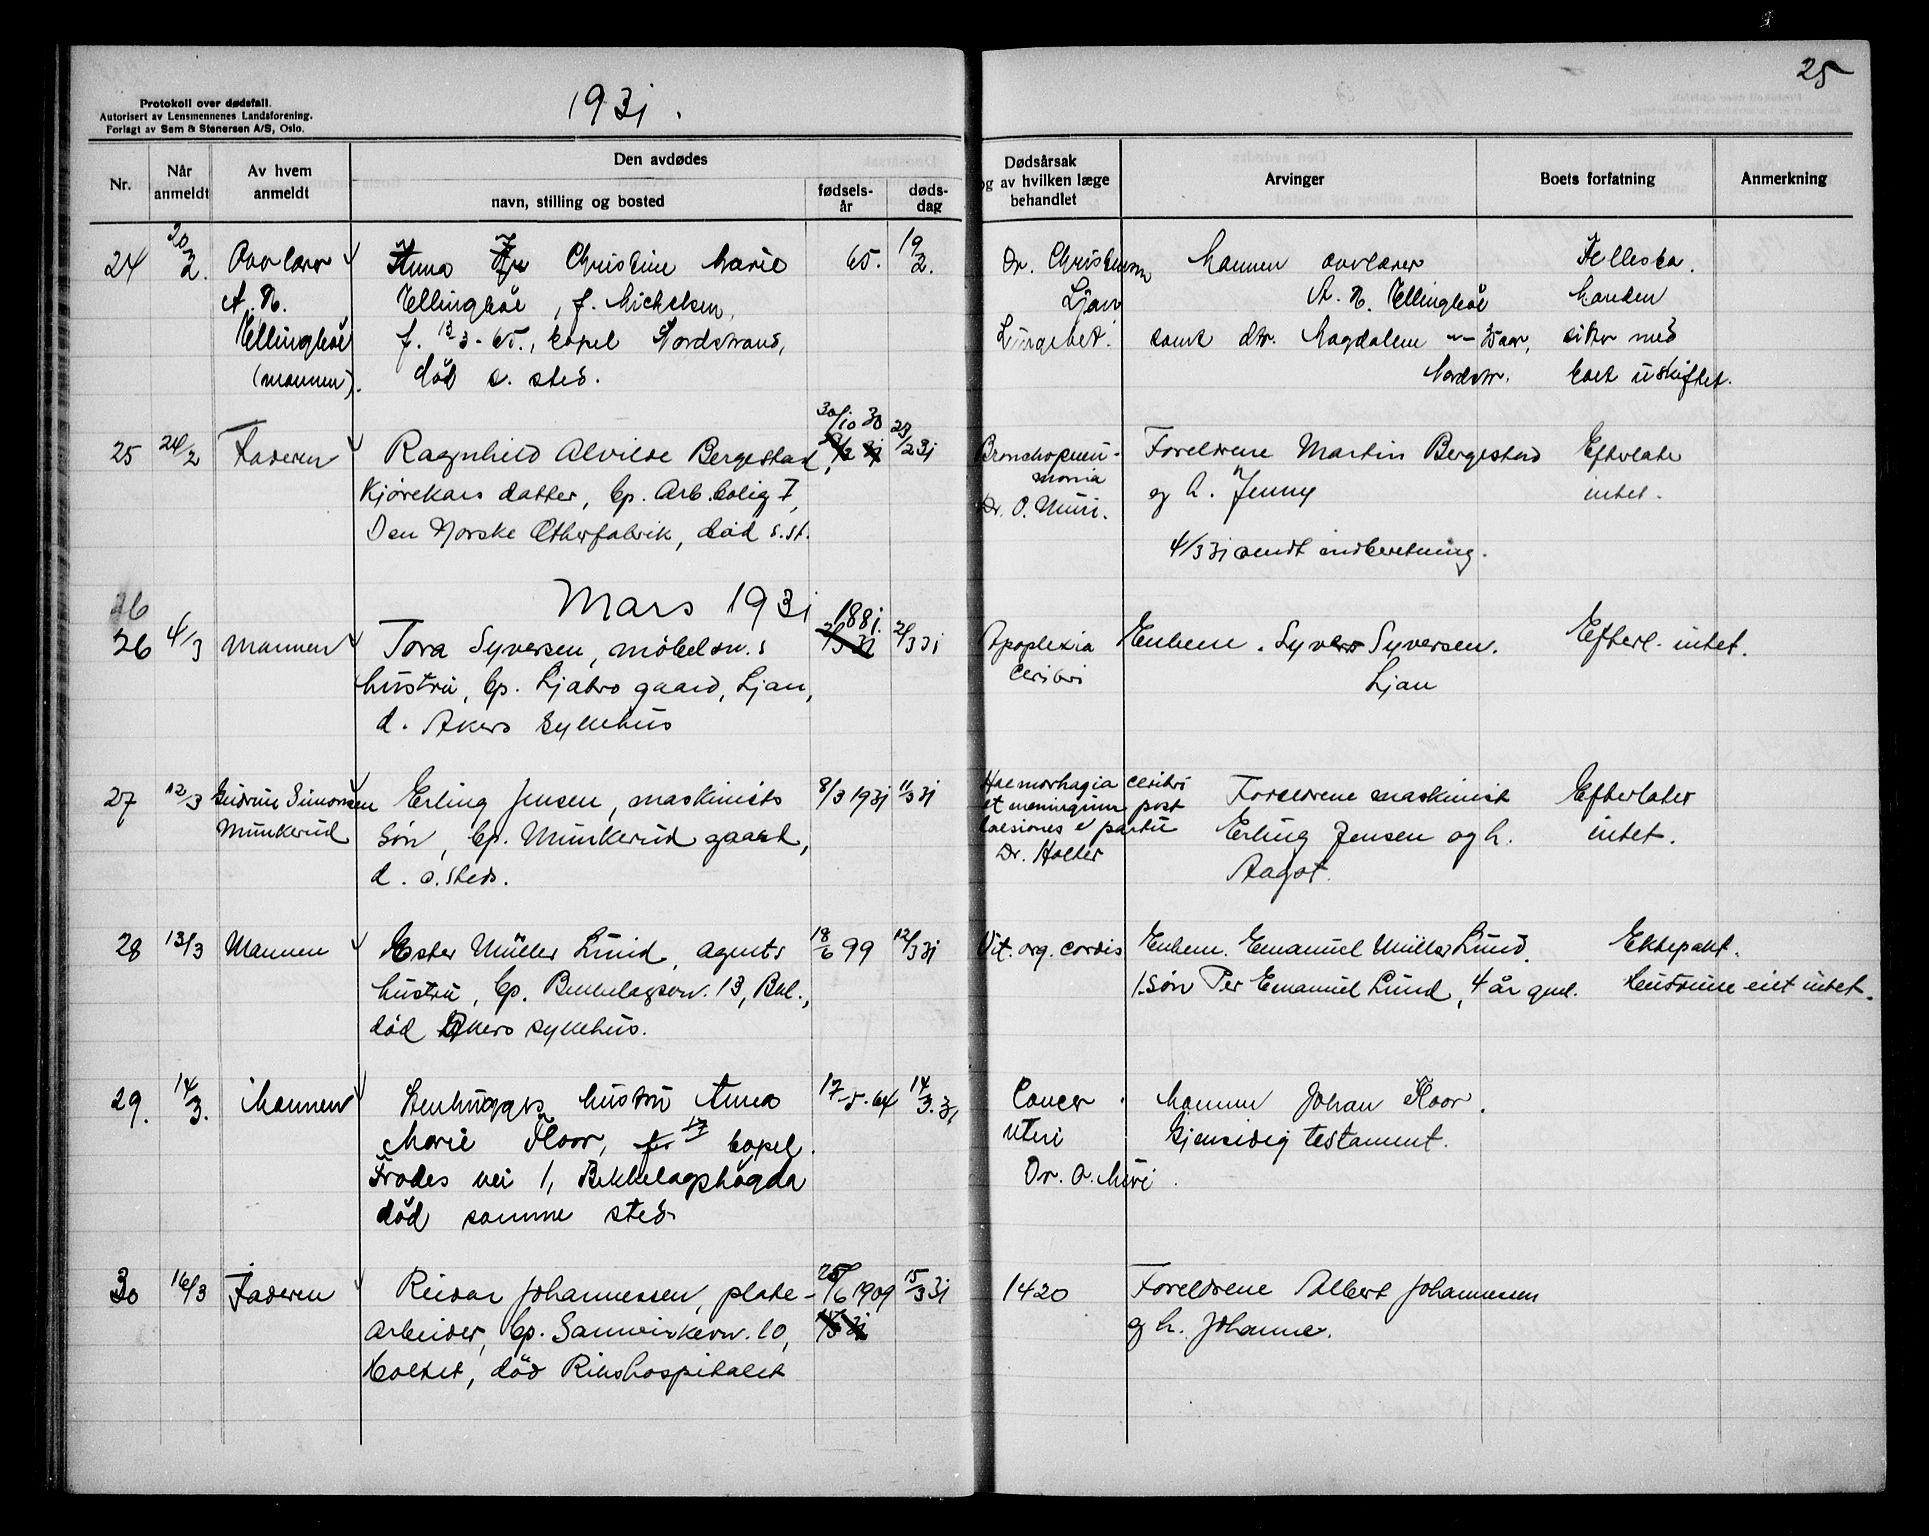 25
Protokoll over dødsfall.
Autorisert av Lensmennenes Landsforening.
Forlagt av Sem & Stenersen A/S, Oslo.
1931.
Nr.
Når anmeldt
Av hvem anmeldt
Den avdødes
navn, stilling og bosted
fødsels-år
døds-dag
Dødsårsak
og av hvilken læge
behandlet
Arvinger
Boets forfatning
Anmerkning
24
20/2.
A. N.
Ellinghöl
(mannen).
Anna Christine Marie
Ellinghöl, f. Michelsen,
f. 13/3-65., bopel Nordstrand,
död s. sted.
65.
19/2.
Dr. Christensen
Ljan
Mannen
A. N. Ellinghöl
samt dtr. Magdalene
Nordstr.
Fellesbo.
Manden
sitter med
boet uskiftet.
25
24/2
Faderen
Ragnhild Alvilde Bergestad,
Kjörekars datter, bp. Arb.bolig I,
Den Norske Etherfabrik, död s.st.
30/10 30
23/2 31
Bronchopneu-
monia
Dr. O. Muri.
Foreldrene Martin Bergestad
og h. Jenny
4/3 31 sendt indberetning.
Efterlater
intet.
Mars 1931
26
26
4/3
Mannen
Tora Syversen, möbelsn.s
hustru, bp. Ljabro gaard, Ljan,
d. Akers sykehus
1881.
2/3 31
Apoplexia
Ceribri
Enkem. Syver Syversen.
Ljan
Efterl. intet.
27
12/3
Gudrun Simonsen
Munkerud
Erling Jensen, maskinists
sön, bp. Munkerud gaard,
d. s. steds.
8/3 1931
11/3 31
Haemorhagia ceribri
et meningium post
laesiones e partu
Dr. Holter
Foreldrene maskinist
Erling Jensen og h.
Aagot.
Efterlater
intet.
28
13/3
Mannen
Ester Müller Lund, agents
hustru, bp. Bekkelagsv. 13, Bkl.,
död Akers sykehus.
18/6 99
12/3 31
Vit. org. cordis
Enkem. Emanuel Müller Lund.
1 sön Per Emanuel Lund, 4 år gml.
Ektepakt.
Hustruen eiet intet.
29.
14/3.
Mannen
Stenhuggers hustru Anna
Marie Floor, bopel
Frodes vei 1, Bekkelagshögda
död samme sted
17-5-64
14/3.31
Cancer
uteri
Dr. O. Muri.
Mannen Johan Floor.
Gjensidig testament.
30
16/3
Faderen
Reidar Johannessen, plate-
arbeider, bp. Sannerkerv. 10,
Holtet, död Rikshospitalet
25/6 1909
15/3 31
1420
Foreldrene Albert Johannessen
og h. Johanne.